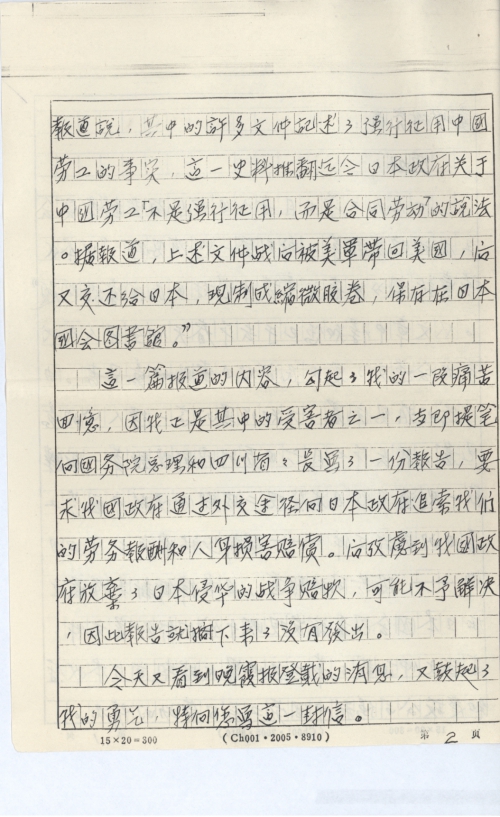 報道説，其中的許多文件記述了强行征用中國
劳工的事实，這一史料推翻迄今日本政府关于
中國劳工「不是强行征用，而是合同劳动」的説法
。据報道，上述文件战后被美軍帶回美國，后
又交还给日本，現制成縮微胶卷，保存在日本
國会图書館。”
這一篇报道的内容，勾起了我的一段痛苦
回憶，因我正是其中的受害者之一，当即提笔
向國务院总理和四川省省長写了一份報告，要
求我國政府通过外交途径向日本政府追索我们
的劳务報酬和人身损害赔償。后攷慮到我國政
府放棄了日本侵华的战争赔款，可能不予解决
，因此報告就搁下来了沒有發出。
今天又看到晚霞报登載的消息，又鼓起了
我的勇气，特向您写這一封信。
15×20=300 (Ch001·2005·8910) 第 2 页